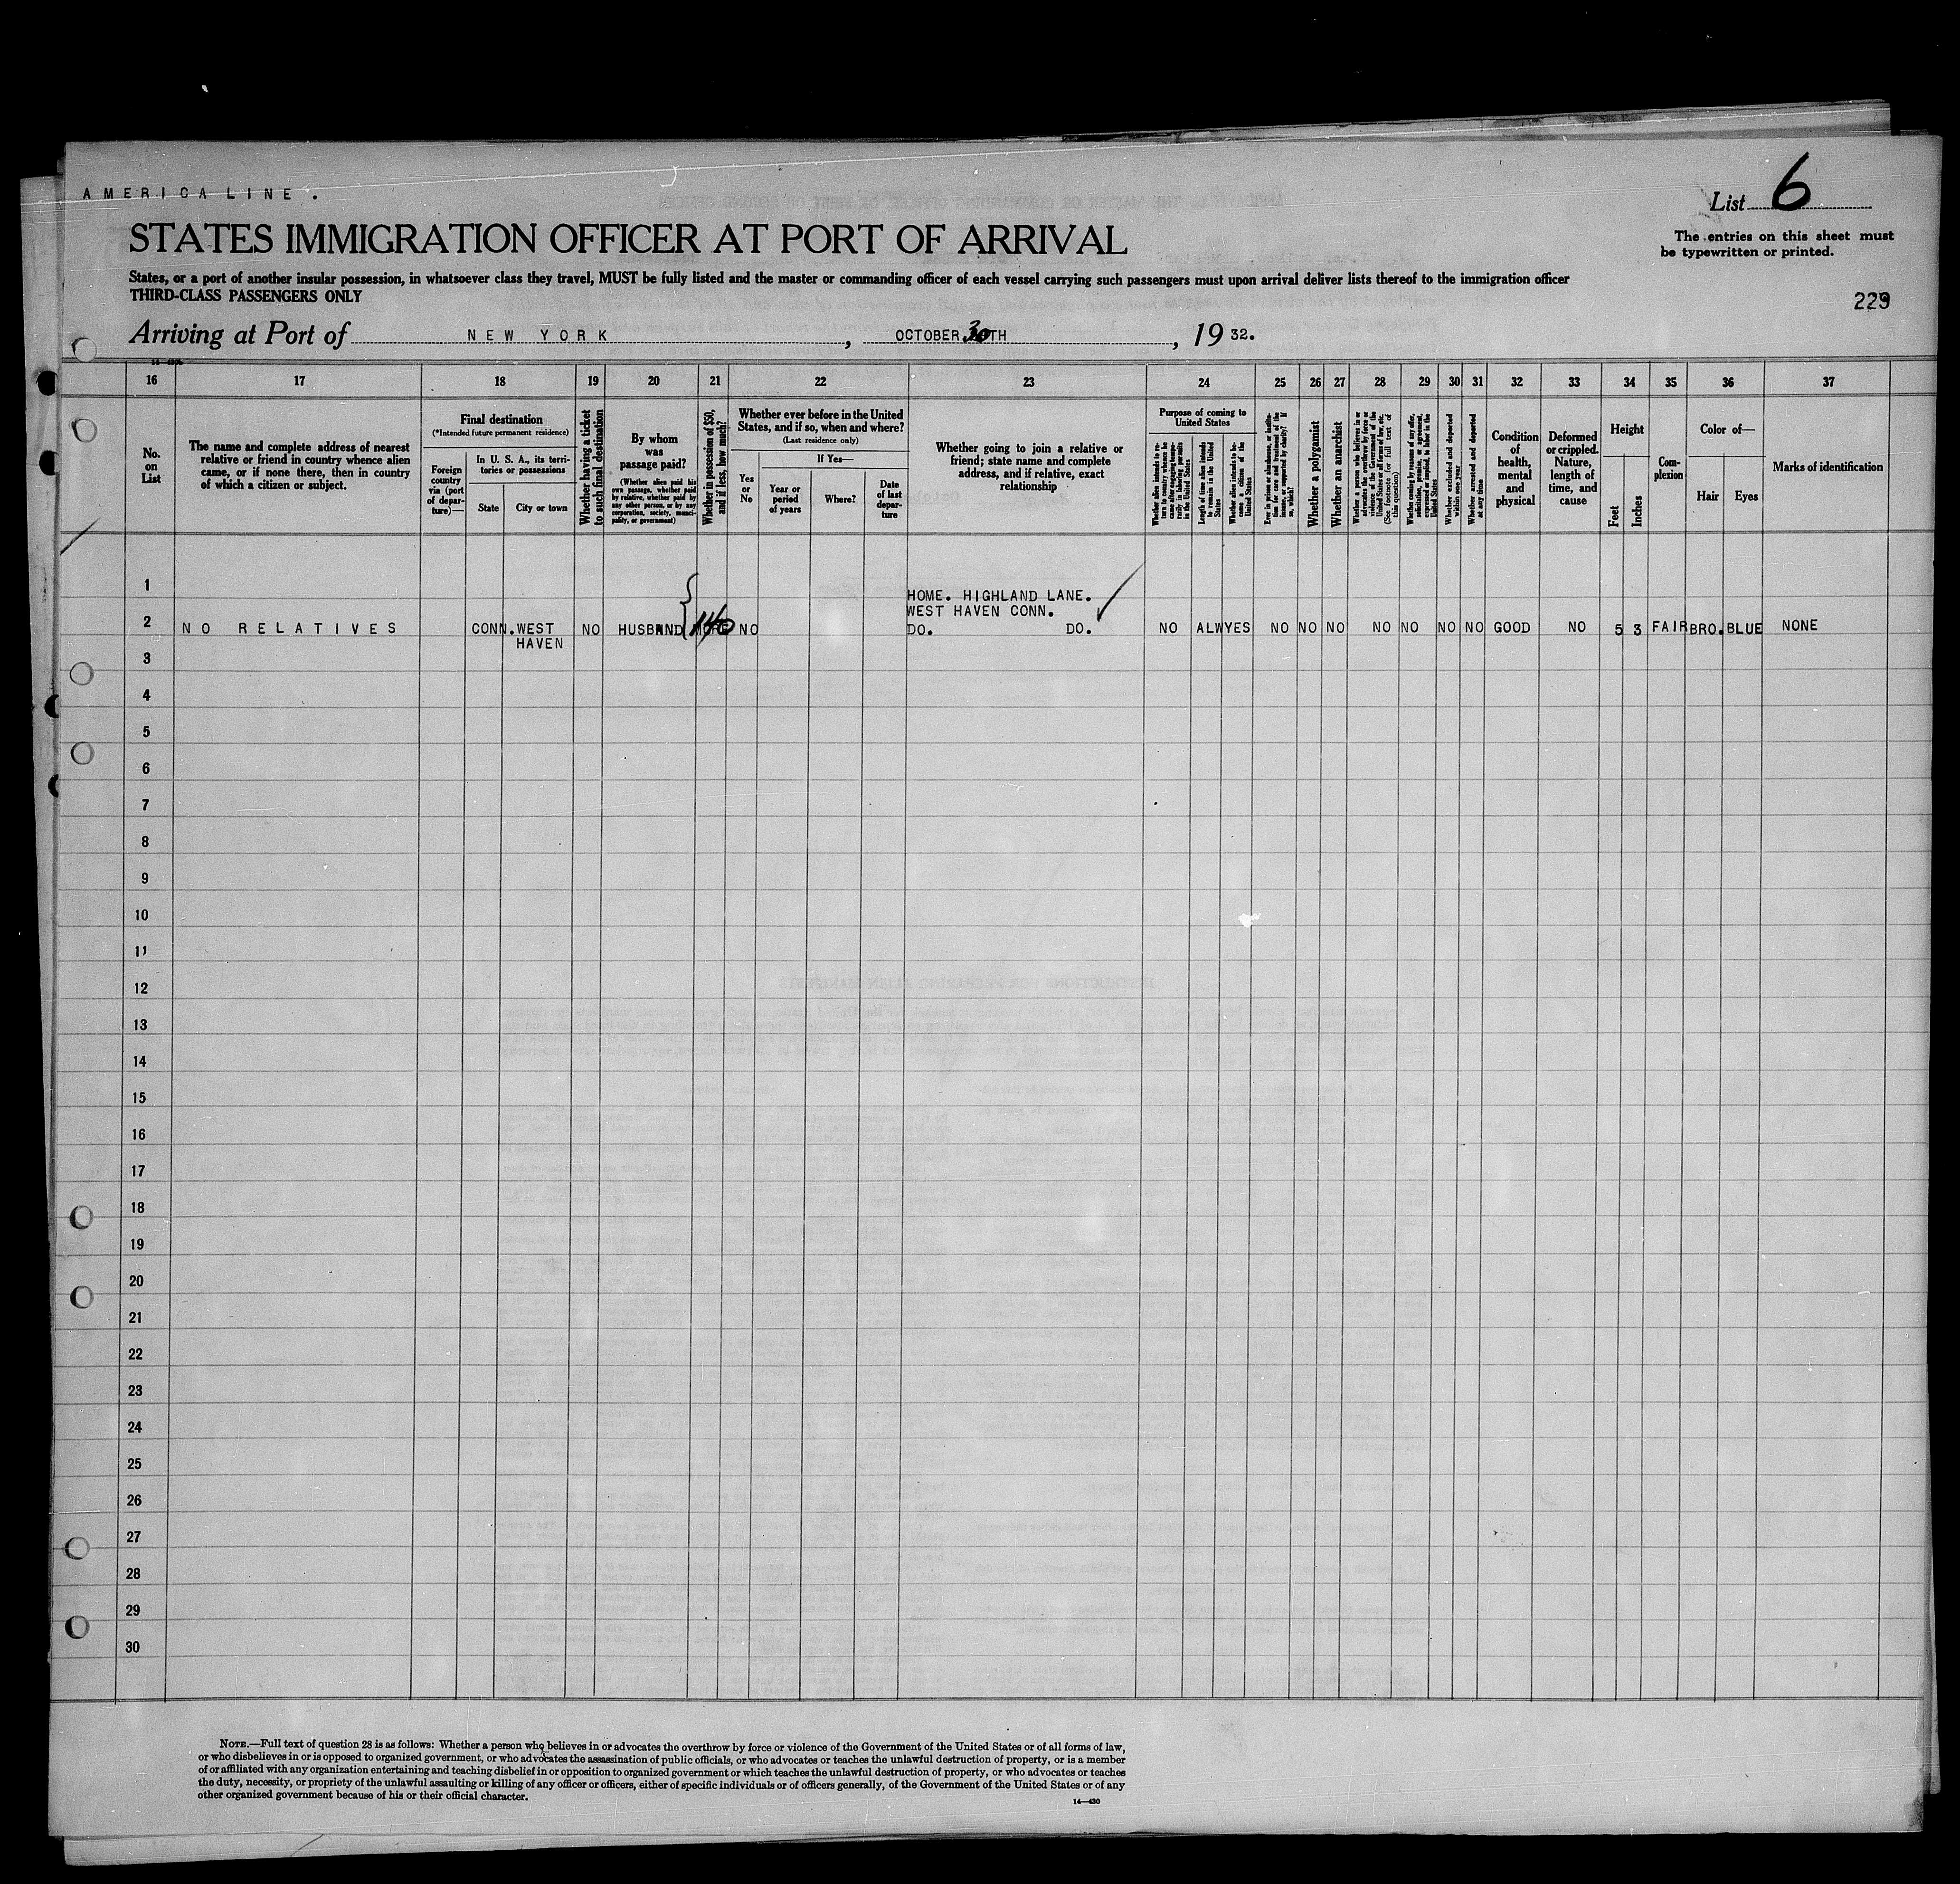 AMERICA LINE.
List 6
STATES IMMIGRATION OFFICER AT PORT OF ARRIVAL
The entries on this sheet must
be typewritten or printed.
States, or a port of another insular possession, in whatsoever class they travel, MUST be fully listed and the master or commanding officer of each vessel carrying such passengers must upon arrival deliver lists thereof to the immigration officer
THIRD-CLASS PASSENGERS ONLY
229
Arriving at Port of NEW YORK, OCTOBER 30TH, 1932.
16 17 18 19 20 21 22 23 24 25 26 27 28 29 30 31 32 33 34 35 36 37
No.
on
List
The name and complete address of nearest
relative or friend in country whence alien
came, or if none there, then in country
of which a citizen or subject.
Final destination
(*Intended future permanent residence)
Foreign
country
via (port
of depar-
ture)—
In U. S. A., its terri-
tories or possessions
State
City or town
Whether having a ticket
to such final destination
By whom
was
passage paid?
(Whether alien paid his
own passage, whether paid
by relative, whether paid by
any other person, or by any
corporation, society, munici-
pality, or government)
Whether in possession of $50,
and if less, how much?
Whether ever before in the United
States, and if so, when and where?
(Last residence only)
Yes
or
No
If Yes—
Year or
period
of years
Where?
Date
of last
depar-
ture
Whether going to join a relative or
friend; state name and complete
address, and if relative, exact
relationship
Purpose of coming to
United States
Whether alien intends to re-
turn to country whence he
came after engaging tempo-
rarily in laboring pursuits
in the United States
Length of time alien intends
to remain in the United
States
Whether alien intends to be-
come a citizen of the
United States
Ever in prison or almshouse, or institu-
tion for care and treatment of the
insane, or supported by charity? If
so, which?
Whether a polygamist
Whether an anarchist
Whether a person who believes in or
advocates the overthrow by force or
violence of the Government of the
United States or all forms of law, etc.
(See footnote for full text of
this question)
Whether coming by reason of any offer,
solicitation, promise, or agreement,
expressed or implied, to labor in the
United States
Whether excluded and deported
within one year
Whether arrested and deported
at any time
Condition
of
health,
mental
and
physical
Deformed
or crippled.
Nature,
length of
time, and
cause
Height
Feet
Inches
Com-
plexion
Color of—
Hair
Eyes
Marks of identification
1
HOME. HIGHLAND LANE.
WEST HAVEN CONN.
2 NO RELATIVES CONN. WEST NO HUSBAND MORE 140 NO DO. DO. NO ALW YES NO NO NO NO NO NO NO GOOD NO 5 3 FAIR BRO. BLUE NONE
HAVEN
3
4
5
6
7
8
9
10
11
12
13
14
15
16
17
18
19
20
21
22
23
24
25
26
27
28
29
30
NOTE.—Full text of question 28 is as follows: Whether a person who believes in or advocates the overthrow by force or violence of the Government of the United States or of all forms of law,
or who disbelieves in or is opposed to organized government, or who advocates the assassination of public officials, or who advocates or teaches the unlawful destruction of property, or is a member
of or affiliated with any organization entertaining and teaching disbelief in or opposition to organized government or which teaches the unlawful destruction of property, or who advocates or teaches
the duty, necessity, or propriety of the unlawful assaulting or killing of any officer or officers, either of specific individuals or of officers generally, of the Government of the United States or of any
other organized government because of his or their official character.
14—430